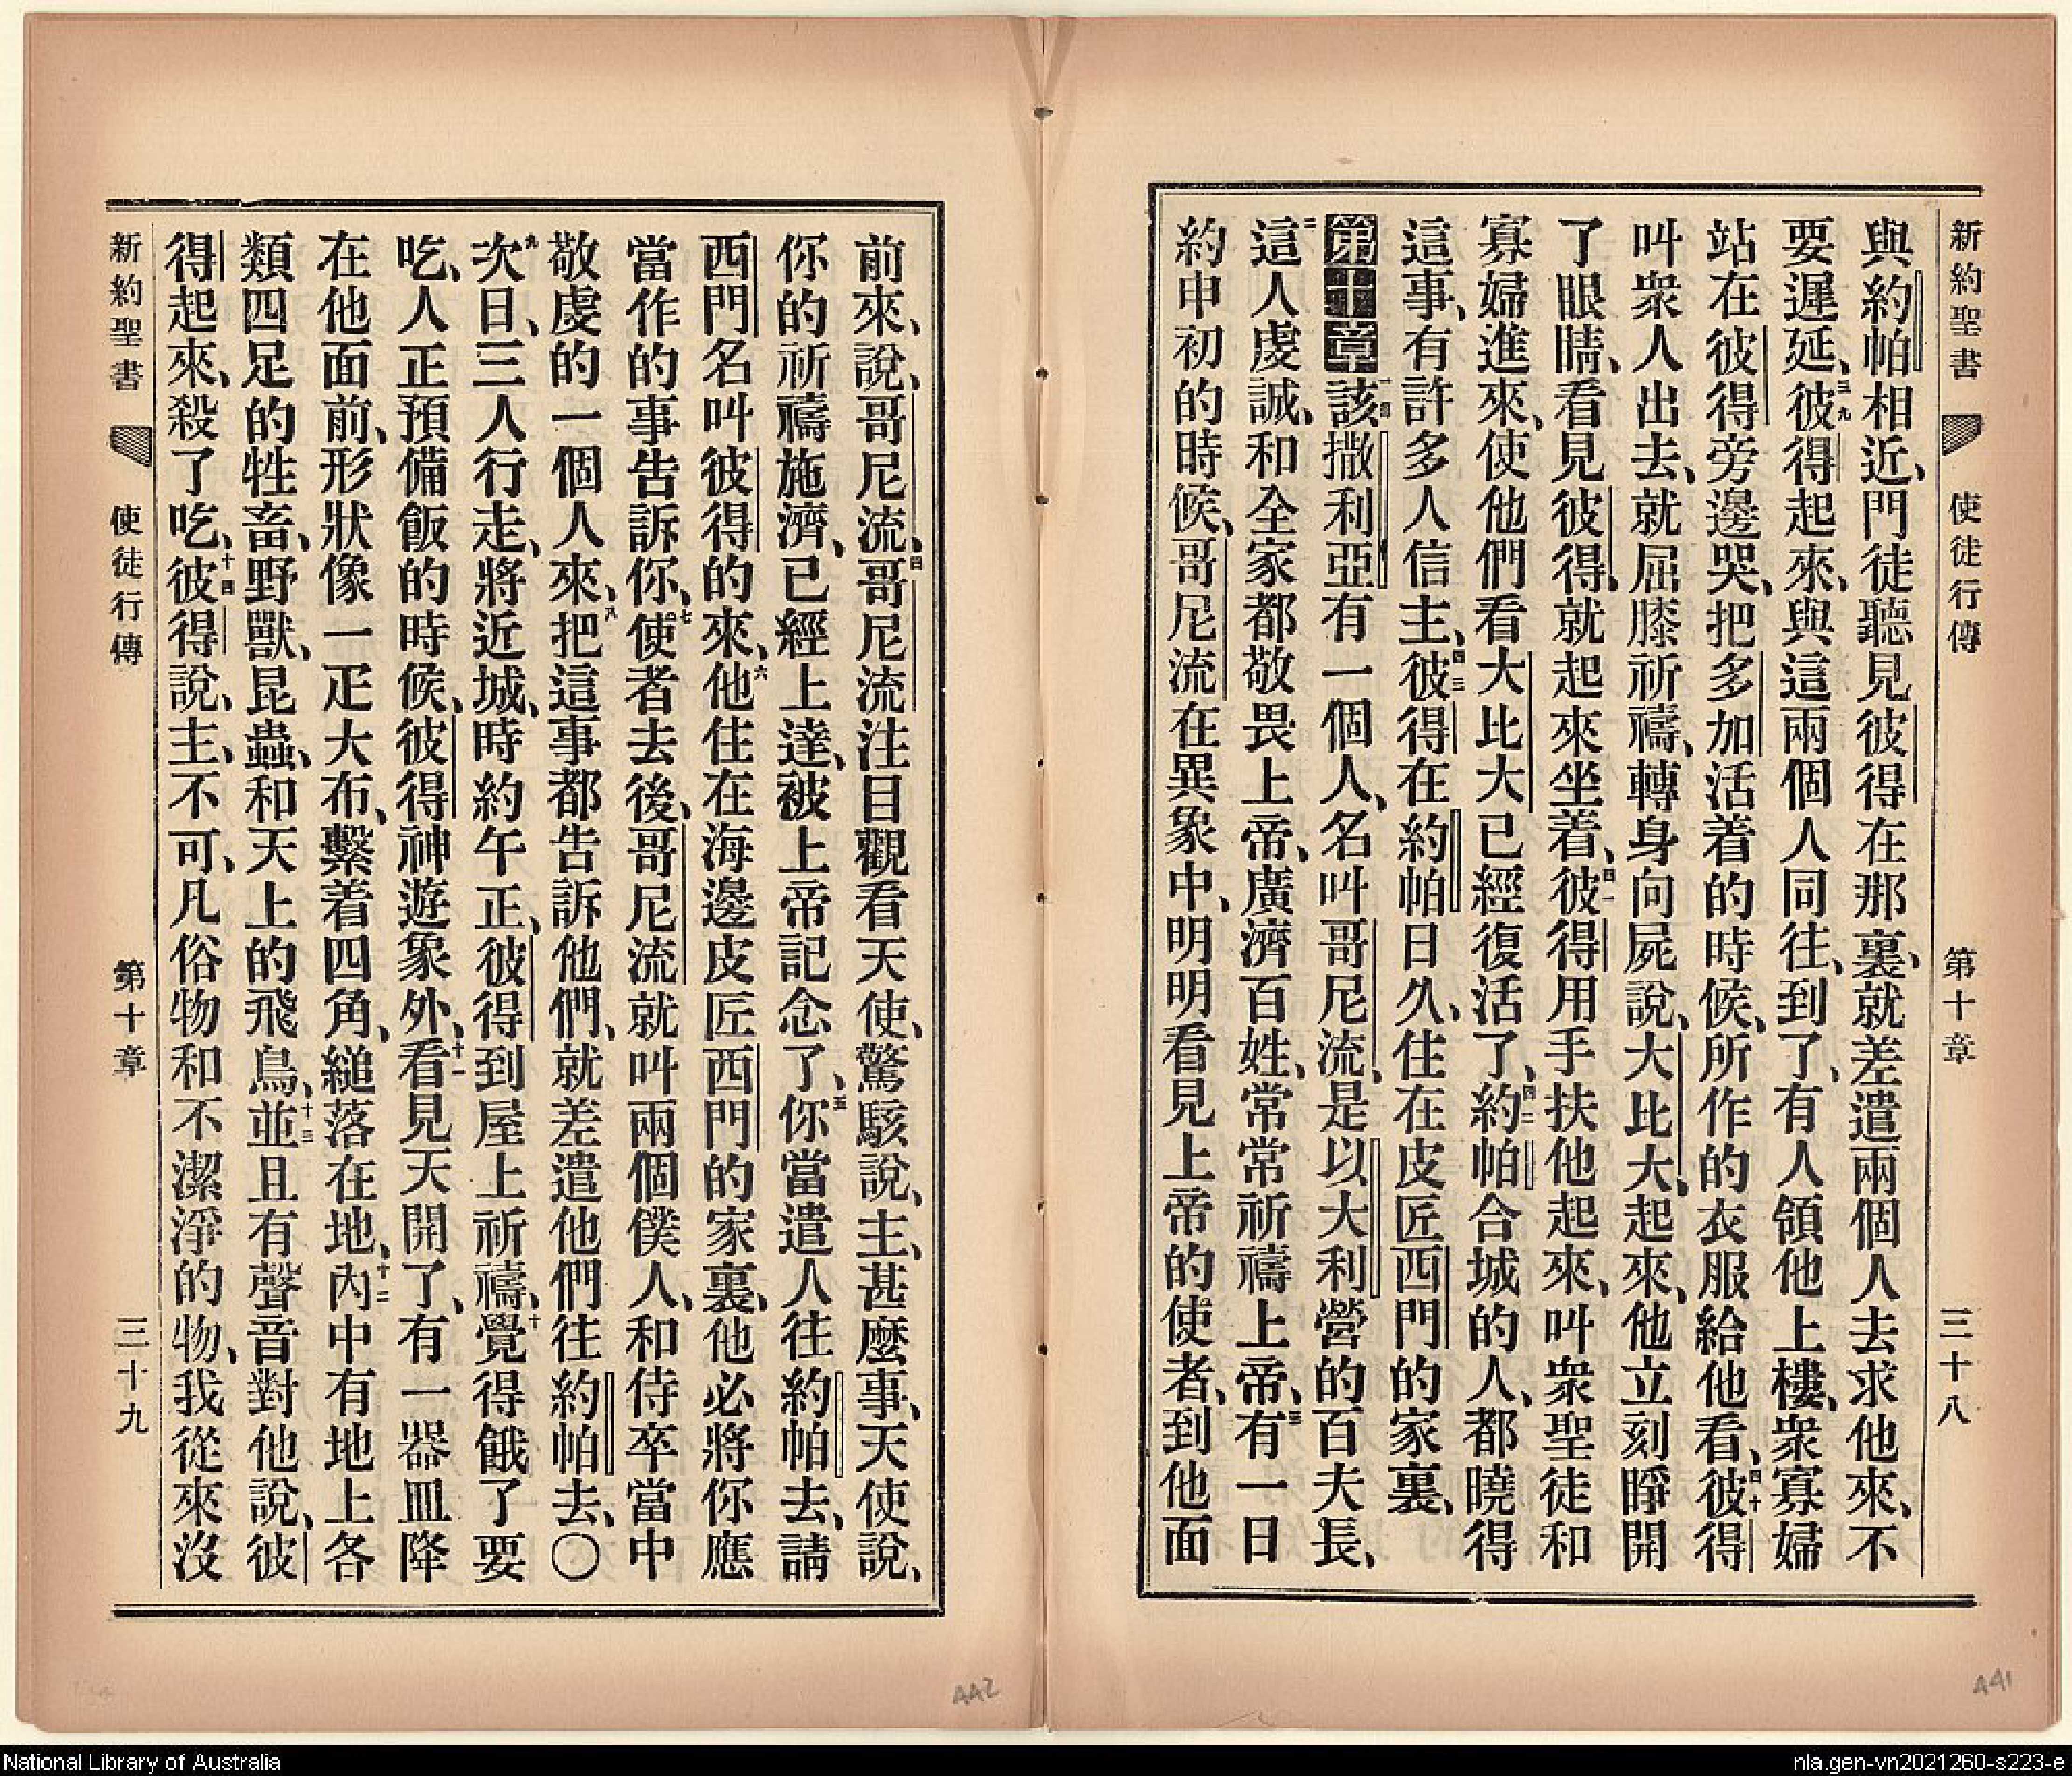 新約聖書 使徒行傳 第十章 三十八
與約帕相近、門徒聽見彼得在那裏、就差遣兩個人去求他來、不
要遲延、三九彼得起來、與這兩個人同往、到了、有人領他上樓、衆寡婦
站在彼得旁邊哭、把多加活着的時候、所作的衣服給他看、四十彼得
叫衆人出去、就屈膝祈禱、轉身向屍說、大比大、起來、他立刻睜開
了眼睛、看見彼得、就起來坐着、四一彼得用手扶他起來、叫衆聖徒和
寡婦進來、使他們看大比大已經復活了、四二約帕合城的人、都曉得
這事、有許多人信主、四三彼得在約帕日久、住在皮匠西門的家裏、
第十章一該撒利亞有一個人、名叫哥尼流、是以大利營的百夫長、
二這人虔誠、和全家都敬畏上帝、廣濟百姓、常常祈禱上帝、三有一日
約申初的時候、哥尼流在異象中、明明看見上帝的使者、到他面
前來、說、哥尼流、四哥尼流注目觀看天使、驚駭說、主、甚麼事、天使說、
你的祈禱施濟、已經上達、被上帝記念了、五你當遣人往約帕去、請
西門名叫彼得的來、六他住在海邊皮匠西門的家裏、他必將你應
當作的事告訴你、七使者去後、哥尼流就叫兩個僕人、和侍卒當中
敬虔的一個人來、八把這事都告訴他們、就差遣他們往約帕去、〇
九次日、三人行走、將近城、時約午正、彼得到屋上祈禱、十覺得餓了要
吃、人正預備飯的時候、彼得神遊象外、十一看見天開了、有一器皿降
在他面前、形狀像一疋大布、繫着四角、縋落在地、十二內中有地上各
類四足的牲畜、野獸、昆蟲、和天上的飛鳥、十三並且有聲音對他說、彼
得起來、殺了吃、十四彼得說、主、不可、凡俗物和不潔淨的物、我從來沒
新約聖書 使徒行傳 第十章 三十九
442
441
National Library of Australia
nla.gen-vn2021260-s223-e